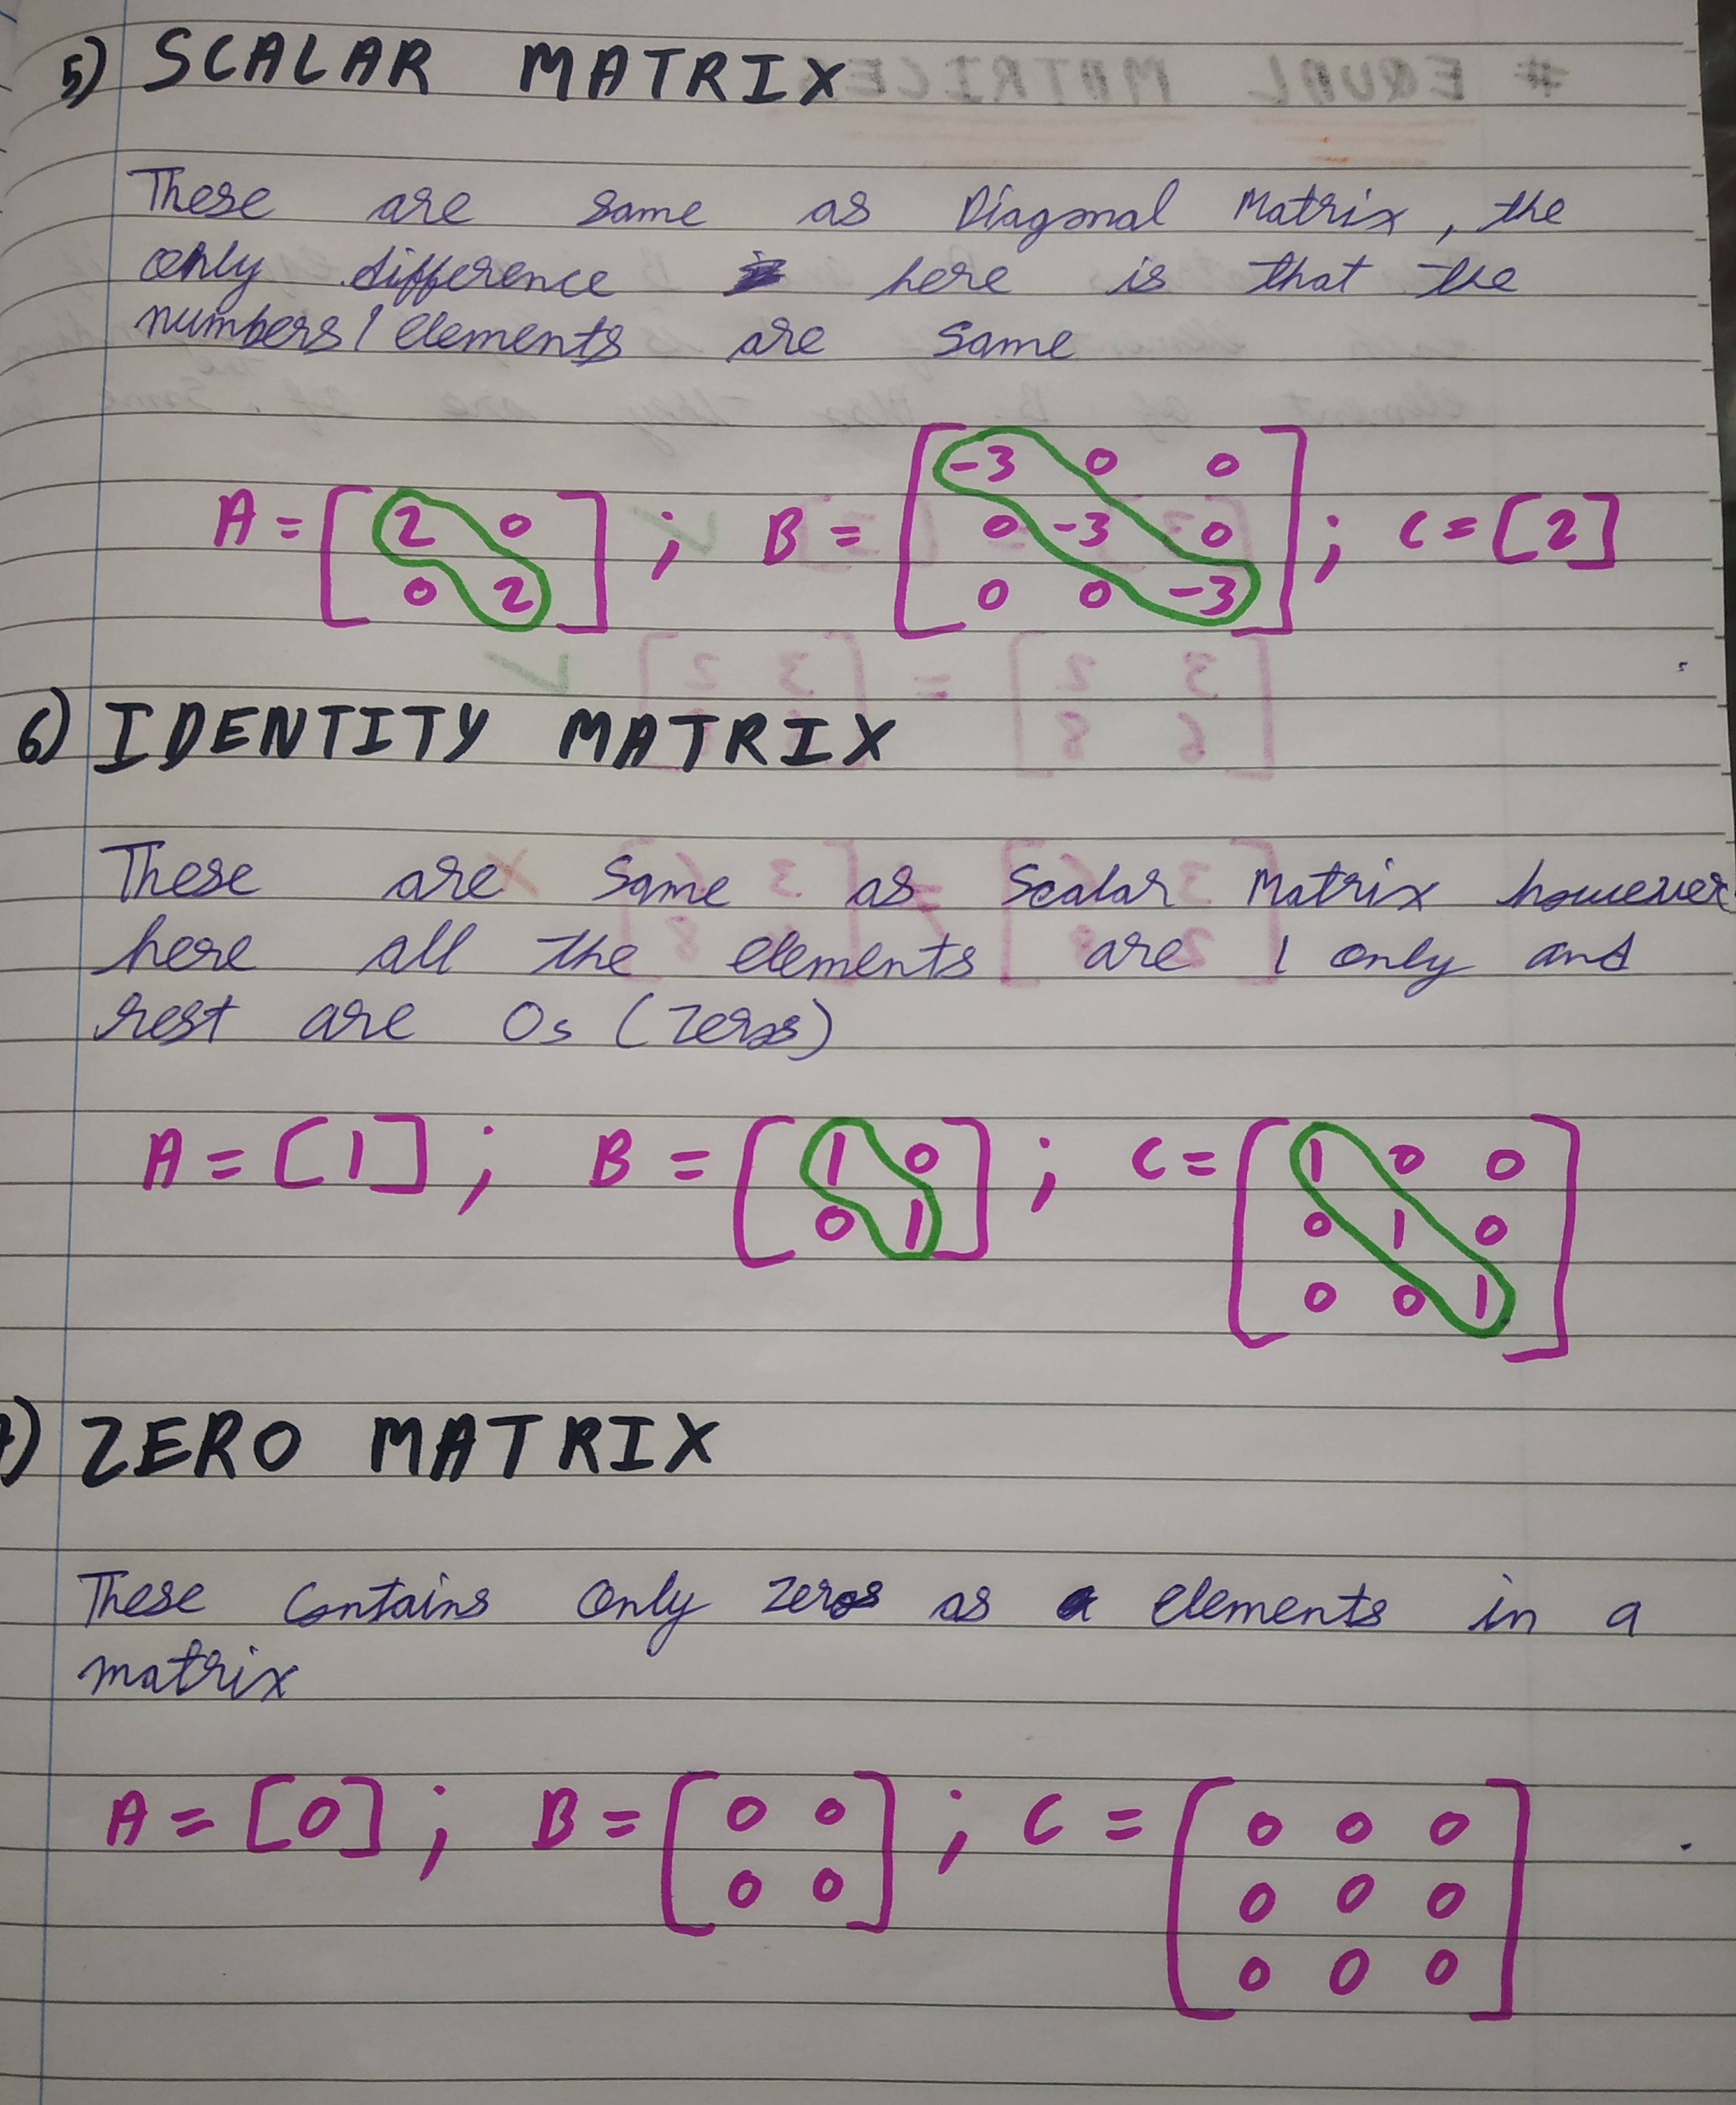 5) SCALAR MATRIX
These are same as Diagonal Matrix, the
only difference here is that the
numbers / elements are same
A = [ 2 0 ; B = [ -3 0 0 ; C = [2]
0 2 ] 0 -3 0
0 0 -3 ]
6) IDENTITY MATRIX
These are same as Scalar Matrix however
here all the elements are 1 only and
rest are 0s (zeros)
A = [1] ; B = [ 1 0 ; C = [ 1 0 0
0 1 ] 0 1 0
0 0 1 ]
) ZERO MATRIX
These contains only zeros as elements in a
matrix
A = [0] ; B = [ 0 0 ; C = [ 0 0 0
0 0 ] 0 0 0
0 0 0 ]